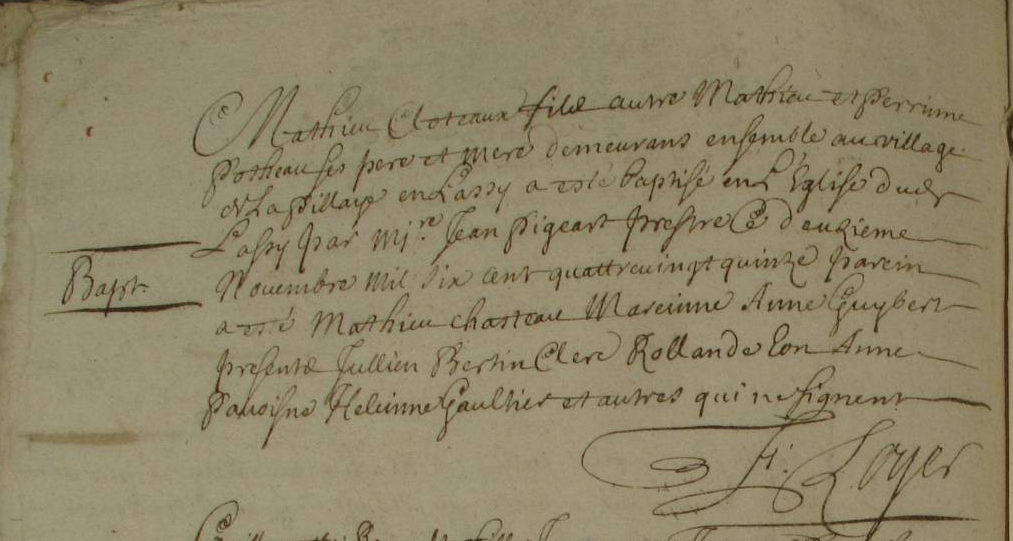 Mathieu Cloteaux filz autre Mathieu et Perrinne
Potheau ses pere et mere demeurans ensemble au village
de La pillays en Lassy a esté baptisé en L'Église dud
Lassy par Mire Jean Pigeart prestre Ce deuxieme
Bapt
Novembre Mil six cent quattrevingt quinze parein
a esté Mathieu chasteau Mareinne Anne Guybert
presents Jullien Bertin Clerc Rollande Eon Anne
Heleinne Gaultier et autres qui ne signent
Loyer